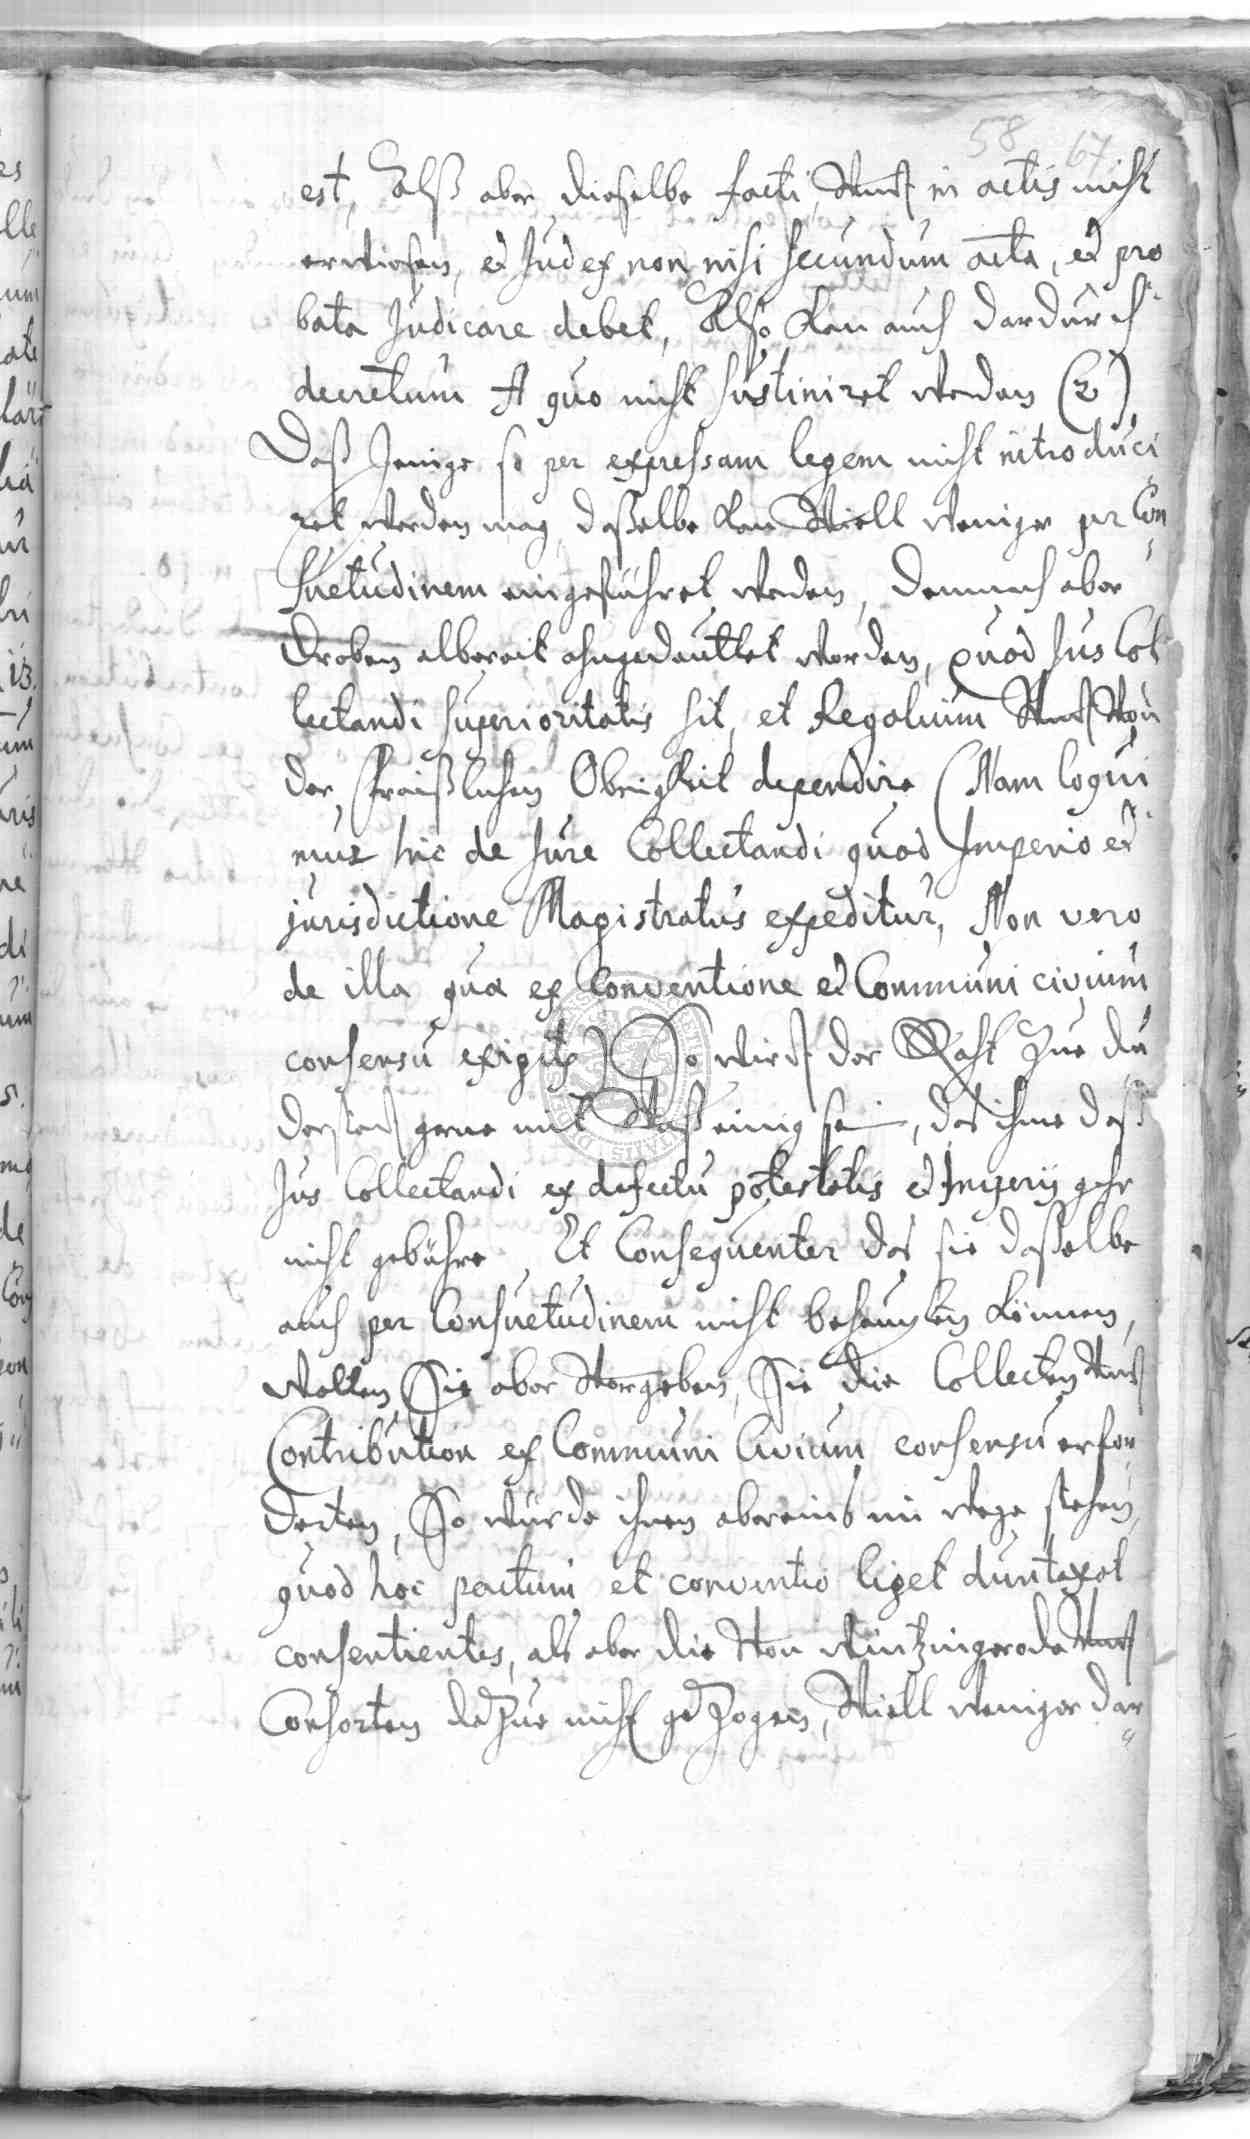 58 67
est, Alß aber dieselbe facti, Undt in actis nicht
erwiesen, et Judex non nisi secundum acta, et pro
bata Judicare debet, Also kan auch dardurch
decretum A quo nicht sustiniret werden (2)
Daß Jenige so per expressam legem nicht introduci
ret werden mag, daßelbe kan Viell weniger per Con
suetudinem eingeführet werden, Demnach aber
Droben albereit angedeuttet worden, quod Jus Col
lectandi superioritatis sit, et Regalium Undt Von
der fraißlichen Obrigkeit dependire (Nam loqui
mur hic de Jure Collectandi quod Imperio et
jurisdictione Magistratus expeditur, Non vero
de illa quæ ex Conventione et Communi civium
consensu exigitur) So wirdt der Raht Zue Du
derstadt gerne mit Unß einig sein, das ihme daß
Jus Collectandi ex defectu potestatis et Imperij gahr
nicht gebühre, Et Consequenter das sie daßelbe
auch per Consuetudinem nicht behaupten können,
Wollen Sie aber Vorgeben, Sie die Collecten Undt
Contribution ex Communi Civium consensu erfor
derten, So würde ihnen abereins im wege stehen,
quod hoc pactum et conventio liget duntaxat
consentientes, als aber die Von Wintzingeroda Undt
Consorten daZue nicht geZogen, Viell weniger dar